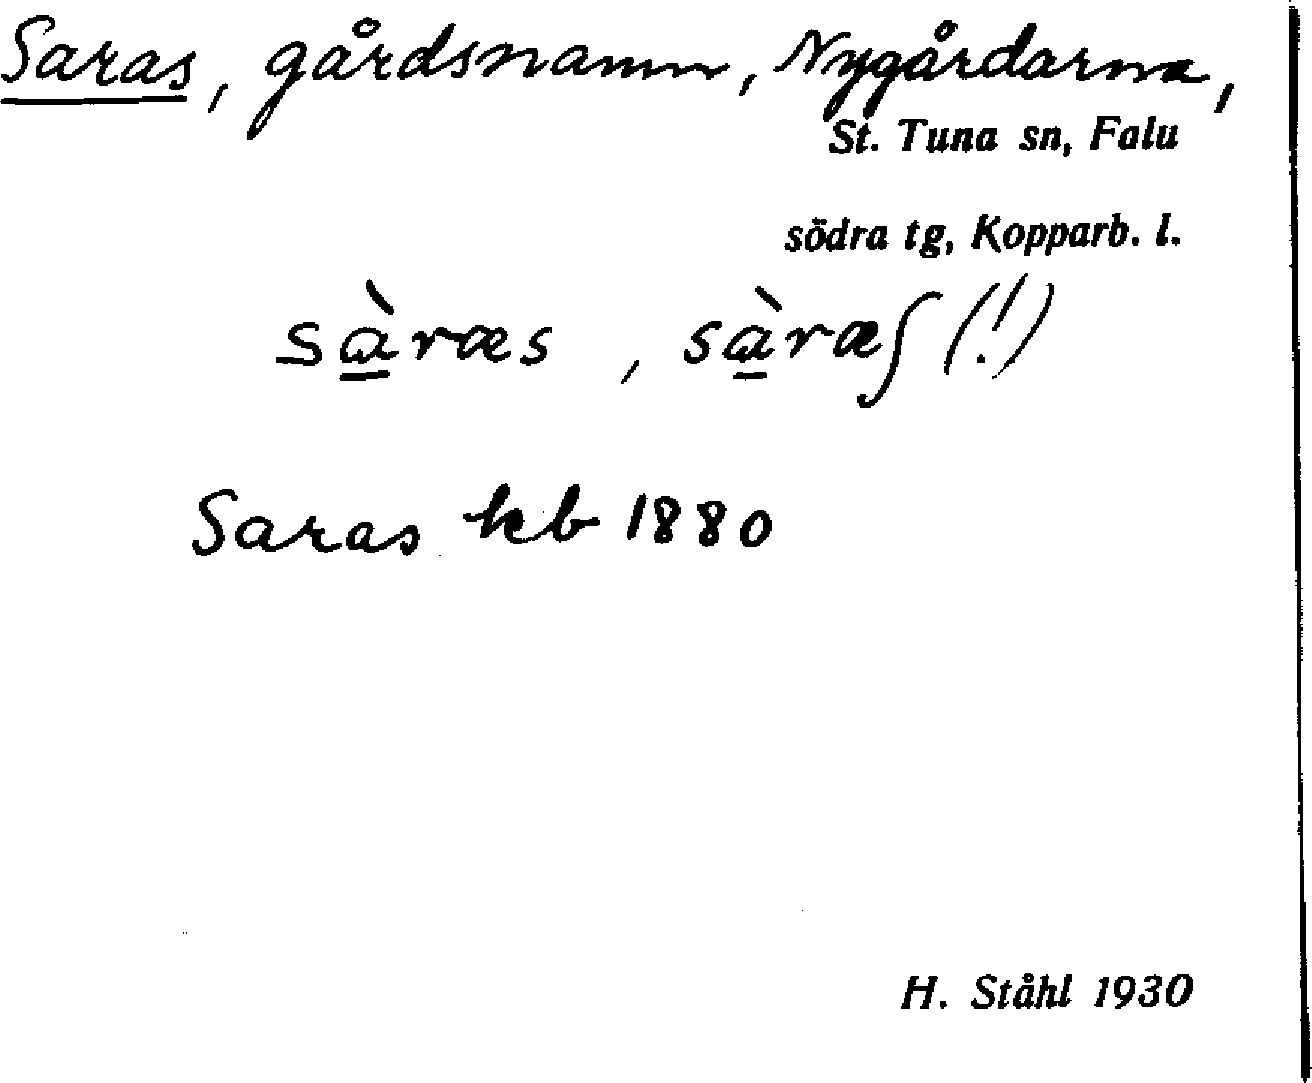 Saras, gårdsnamn, Nygårdarna,
St. Tuna sn, Falu
södra tg, Kopparb. l.
sàræs, sàræʃ (!)
Saras kb 1880
H. Ståhl 1930